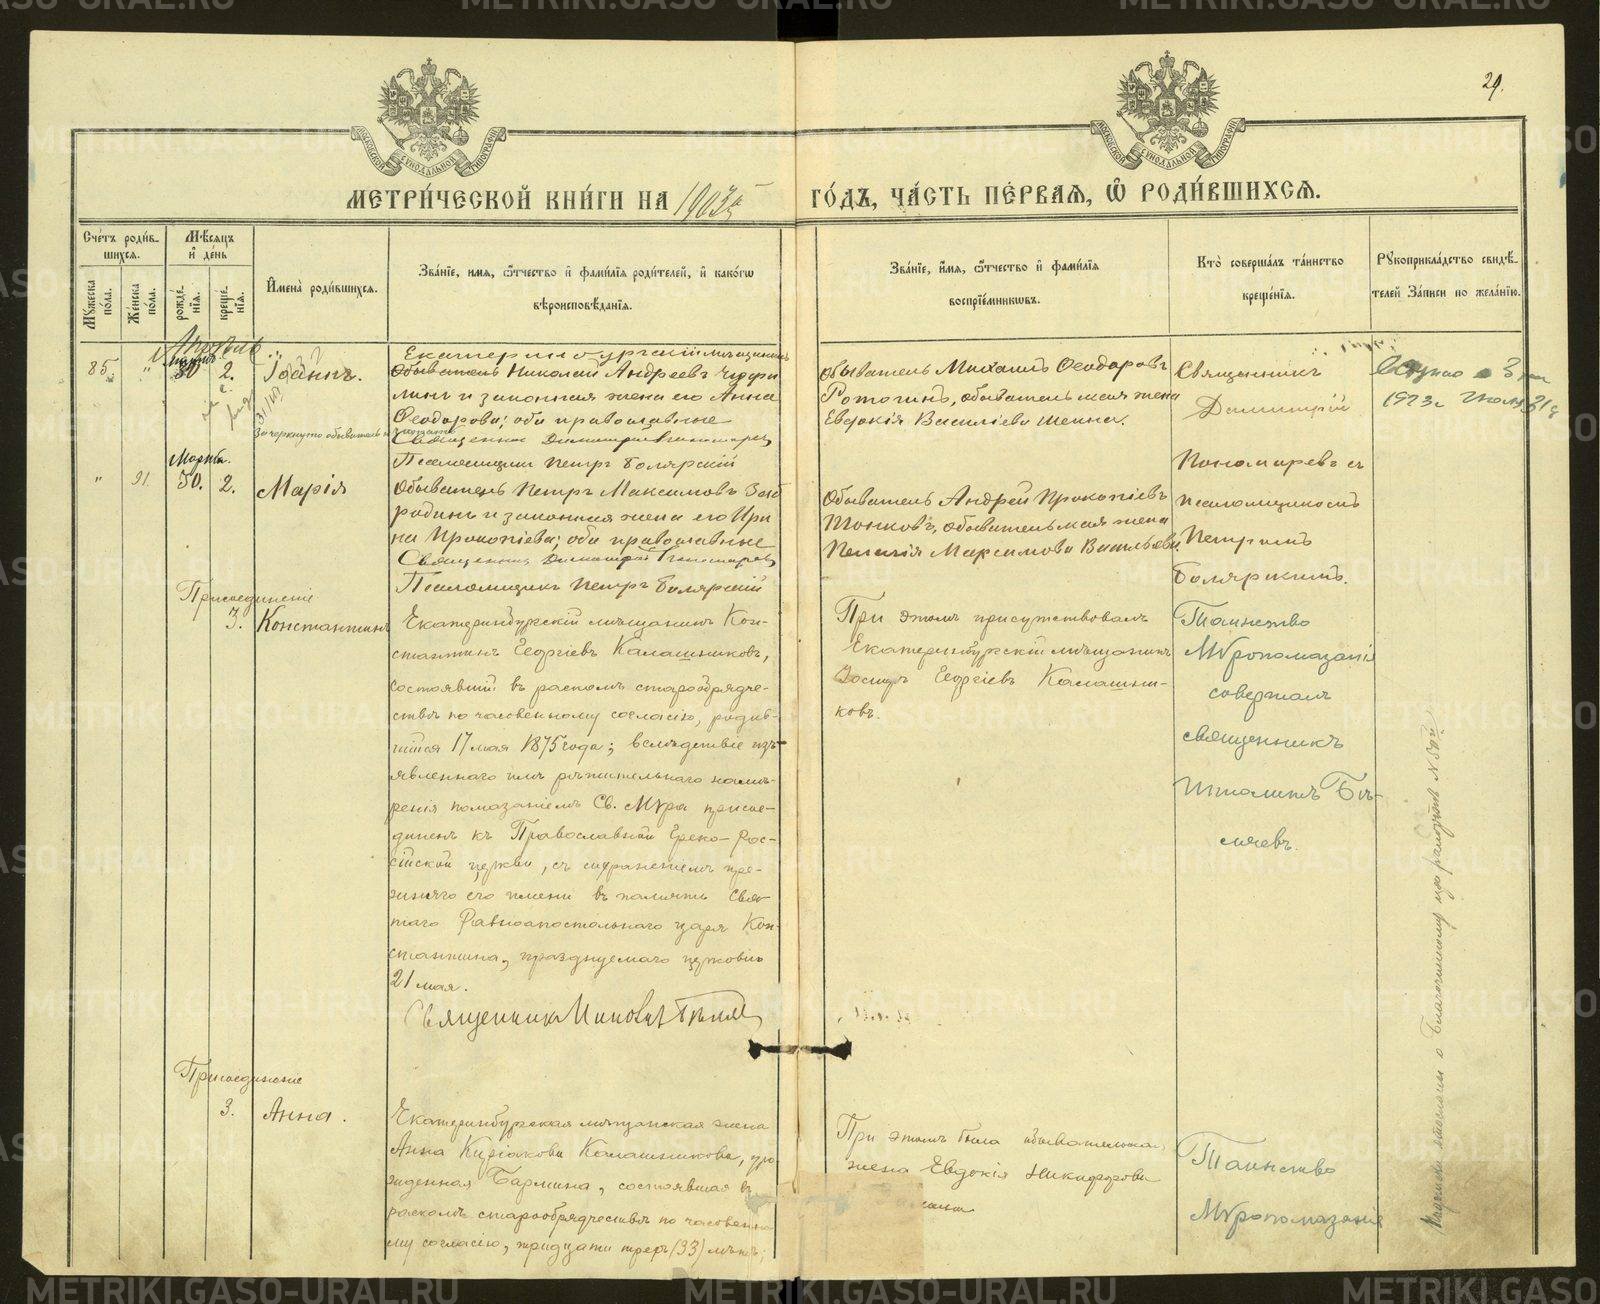 29.
МОСКОВСКОЙ СѴНОДАЛЬНОЙ ТИПОГРАФІИ
МОСКОВСКОЙ СѴНОДАЛЬНОЙ ТИПОГРАФІИ
МЕТРИ́ЧЕСКОЙ КНИ́ГИ НА 1903й ГО́ДЪ, ЧА́СТЬ ПЕ́РВАѦ, Ѡ҆ РОДИ́ВШИХСѦ.
Сче́тъ роди́в-
шихсѧ.
Мꙋ́жеска по́ла.
Же́нска по́ла.
Мѣ́сѧцъ
и҆ де́нь
рожде́-
нїѧ.
креще́-
нїѧ.
И҆мена̀ роди́вшихсѧ.
Зва́нїе, имѧ, ѻ҆́тчество и҆ фами́лїѧ роди́телей, и҆ како́гѡ
вѣроисповѣ́данїѧ.
Зва́нїе, и҆́мѧ, ѻ҆́тчество и҆ фами́лїѧ
воспрїе́мникѡвъ.
Кто̀ соверша́лъ та́инство
креще́нїѧ.
Рꙋкоприкла́дство свидѣ́-
телей За́писи по жела́нїю.
Апрѣль
85. " 30 2. Іоаннъ.
Екатеринбургскій мѣщанинъ
Обыватель Николай Андреевъ
и законная жена его Анна
Ѳеодорова; оба православные
Зачеркнуто обыватель
Священникъ Димитрій Пономаревъ
Псаломщикъ Петръ Болярскій
Обыватель Михаилъ Ѳеодоровъ
обывательская жена
Евдокія Васильева
Священникъ
Димитрій
Пономаревъ съ
псаломщикомъ
Петромъ
Болярскимъ.
1923г
Марта.
" 91. 30. 2. Марія
Обыватель Петръ Максимовъ Заб
родинъ и законная жена его Ири
на Прокопіева; оба православные
Священникъ Димитрій Пономаревъ
Псаломщикъ Петръ Болярскій
Обыватель Андрей Прокопіевъ
Тонковъ, обывательская жена
Пелагія Максимова
Присоединеніе
3. Константинъ
Екатеринбургскій мѣщанинъ Кон-
стантинъ Георгіевъ Калашниковъ,
состоявшій въ расколѣ старообрядче-
ства по часовенному согласію, родив-
шійся 17 мая 1875 года; вслѣдствіе изъ-
явленнаго имъ рѣшительнаго намѣ-
ренія помазаніемъ Св. Мѵра присое-
диненъ къ Православной Греко-Рос-
сійской церкви, съ сохраненіемъ пре-
жняго его имени въ память Свя-
таго Равноапостольнаго царя Кон-
стантина, празднуемаго церковію
21 мая.
Священникъ
При этомъ присутствовалъ
Екатеринбургскій мѣщанинъ
Іосифъ Георгіевъ Калашни-
ковъ.
Таинство
Мѵропомазанія
совершалъ
священникъ
Бѣ-
ляевъ.
Присоединеніе
3. Анна.
Екатеринбургская мѣщанская жена
Анна Киріакова Калашникова, уро-
жденная Бармина, состоявшая въ
расколѣ старообрядчества по часовенно
му согласію, тридцати трехъ (33) лѣтъ;
При этомъ была обывательская
жена Евдокія Никифорова
Таинство
Мѵропомазанія
о Благочинному
METRIKI.GASO-URAL.RU